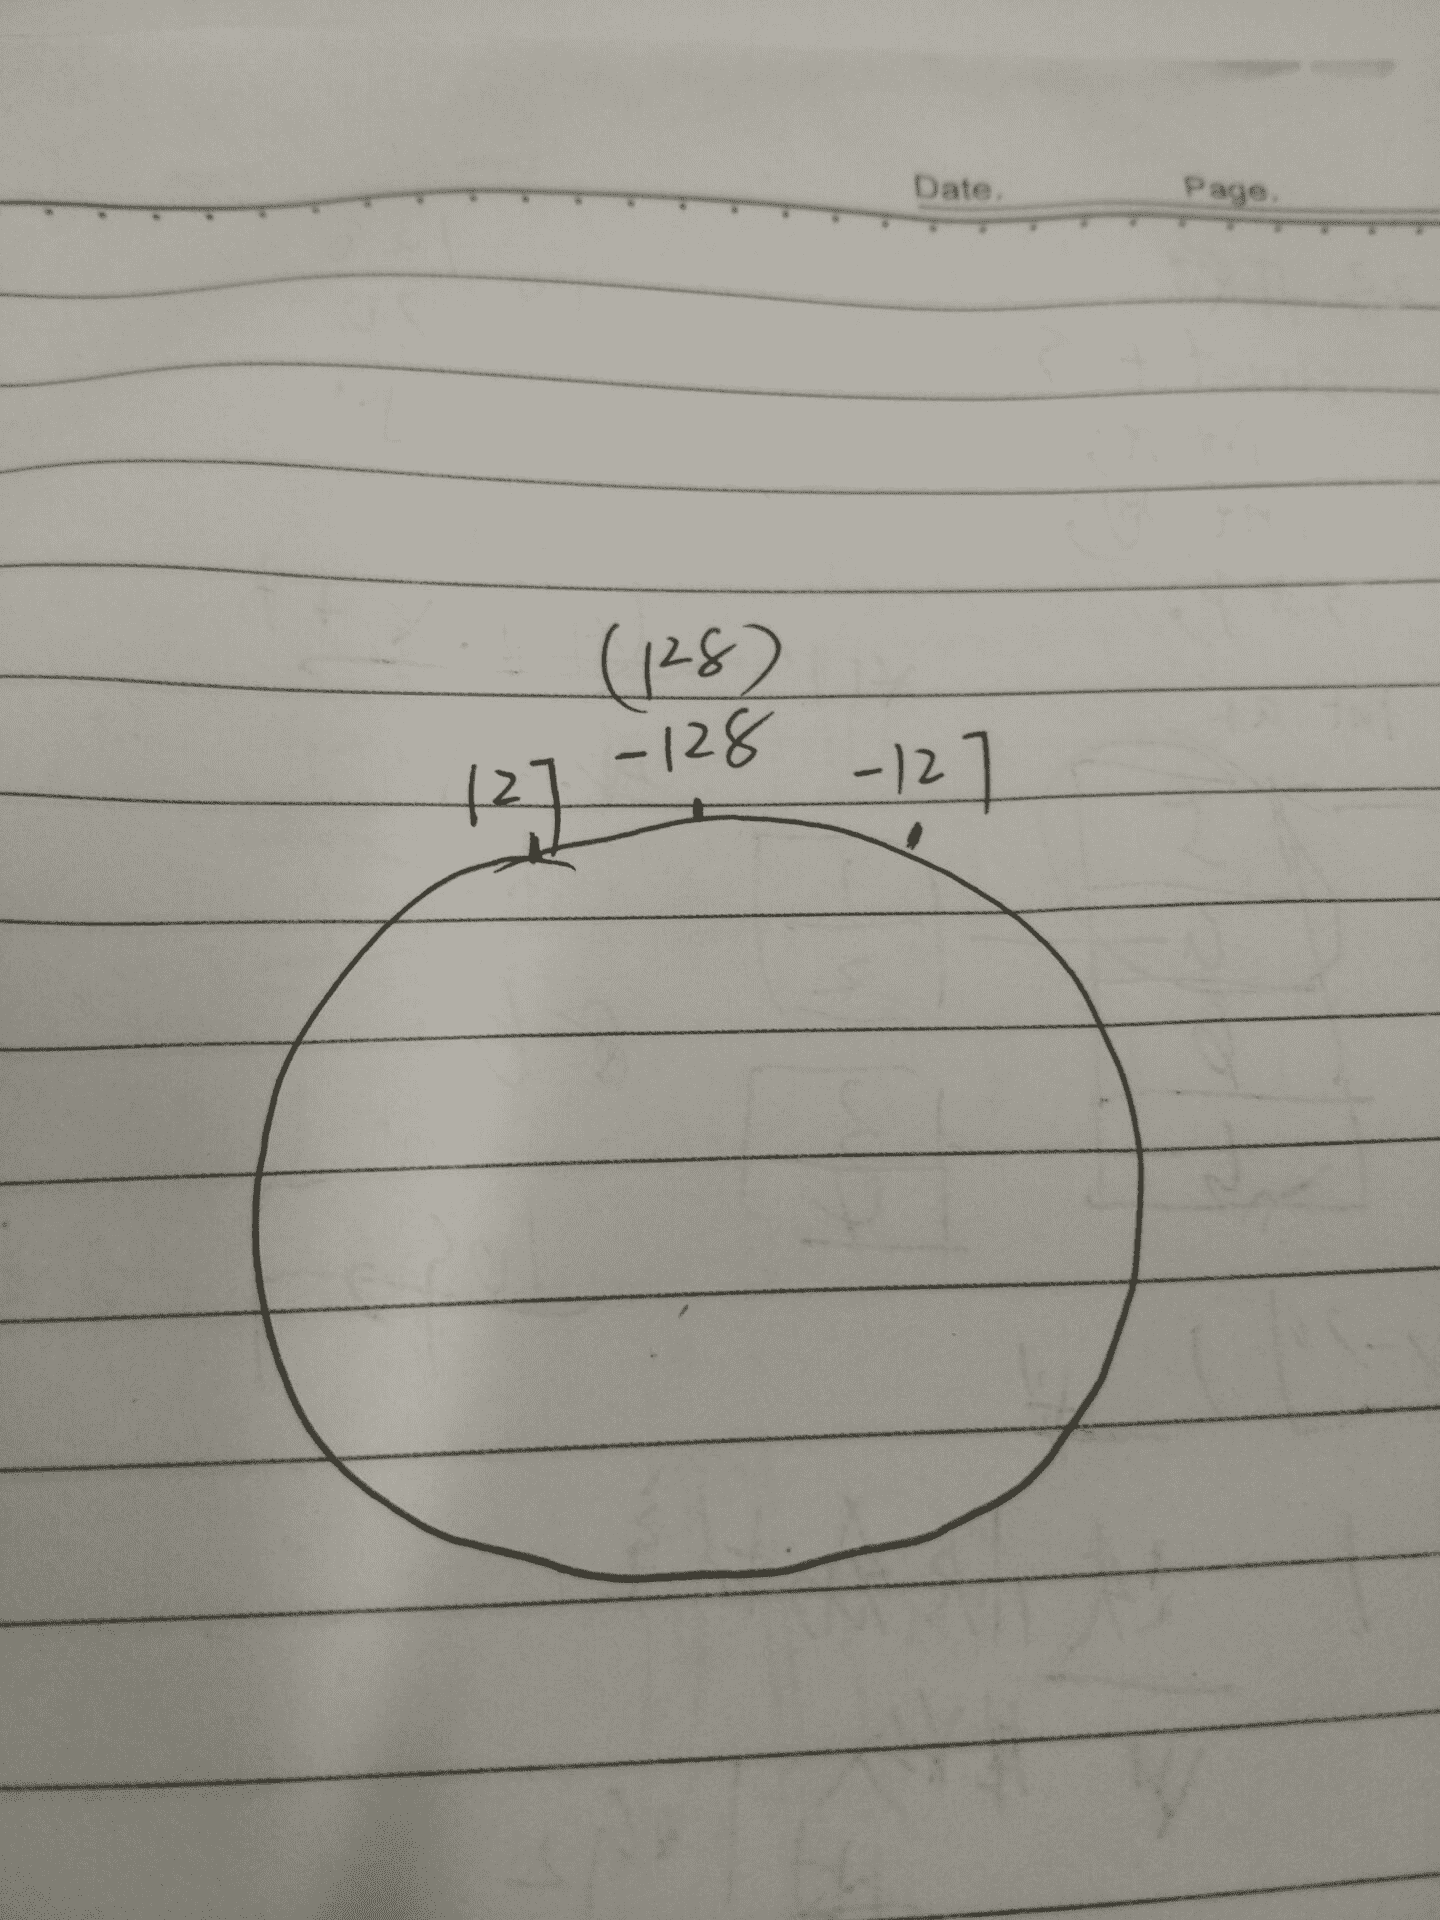 Date. Page.
(128)
-128
127 -127